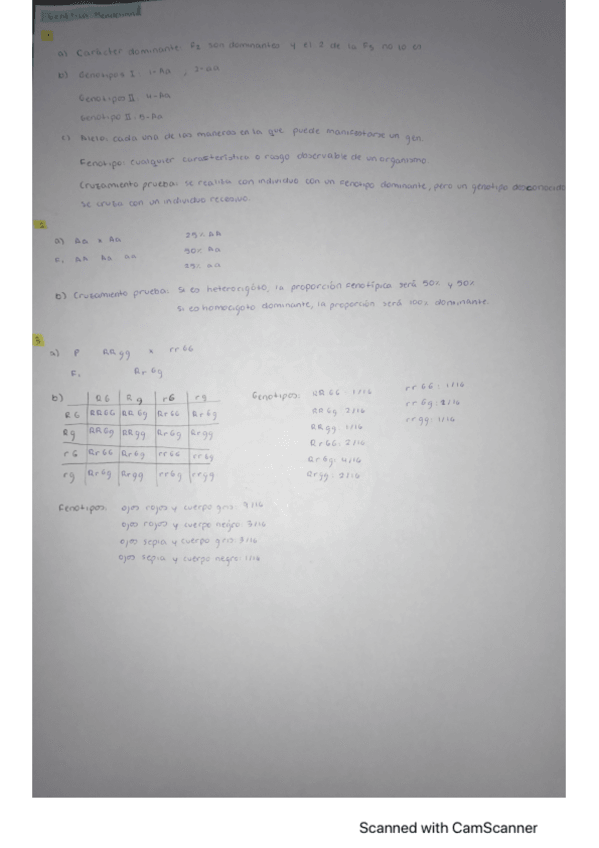 Genética Mendeliana
1.
a) Carácter dominante: F2 son dominantes y el 2 de la F3 no lo es
b) Genotipos I: 1-Aa , 2-aa
Genotipos II: 4-Aa
Genotipo III: 5-Aa
c) Alelo: cada una de las maneras en la que puede manifestarse un gen.
Fenotipo: cualquier característica o rasgo observable de un organismo.
Cruzamiento prueba: se realiza con individuo con un fenotipo dominante, pero un genotipo desconocido
se cruza con un individuo recesivo.
2.
a) Aa x Aa 25% AA
F1 AA Aa aa 50% Aa
25% aa
b) Cruzamiento prueba: Si es heterocigóto, la proporción fenotípica será 50% y 50%
Si es homocigoto dominante, la proporción será 100% dominante.
3.
a) P RRgg x rrGG
F1 RrGg
b) RG Rg rG rg
RG RRGG RRGg RrGG RrGg
Rg RRGg RRgg RrGg Rrgg
rG RrGG RrGg rrGG rrGg
rg RrGg Rrgg rrGg rrgg
Genotipos: RRGG: 1/16
RRGg 2/16
RRgg: 1/16
RrGG: 2/16
RrGg: 4/16
Rrgg: 2/16
rrGG: 1/16
rrGg: 2/16
rrgg: 1/16
Fenotipos: ojos rojos y cuerpo gris: 9/16
ojos rojos y cuerpo negro: 3/16
ojos sepia y cuerpo gris: 3/16
ojos sepia y cuerpo negro: 1/16
Scanned with CamScanner